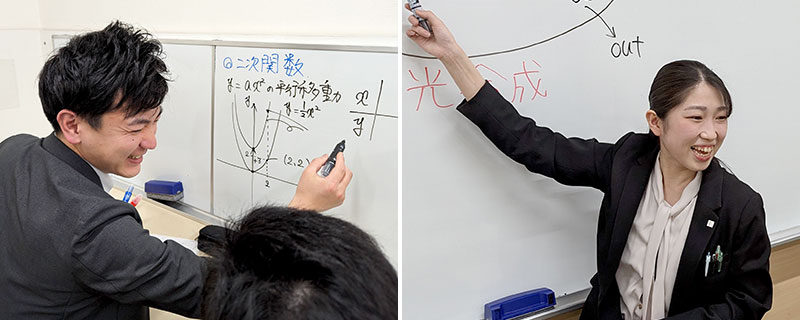 ◎二次関数
y=ax²の平行移動
y
y=½x²
2
(2,2)
2
x
y
out
光合成